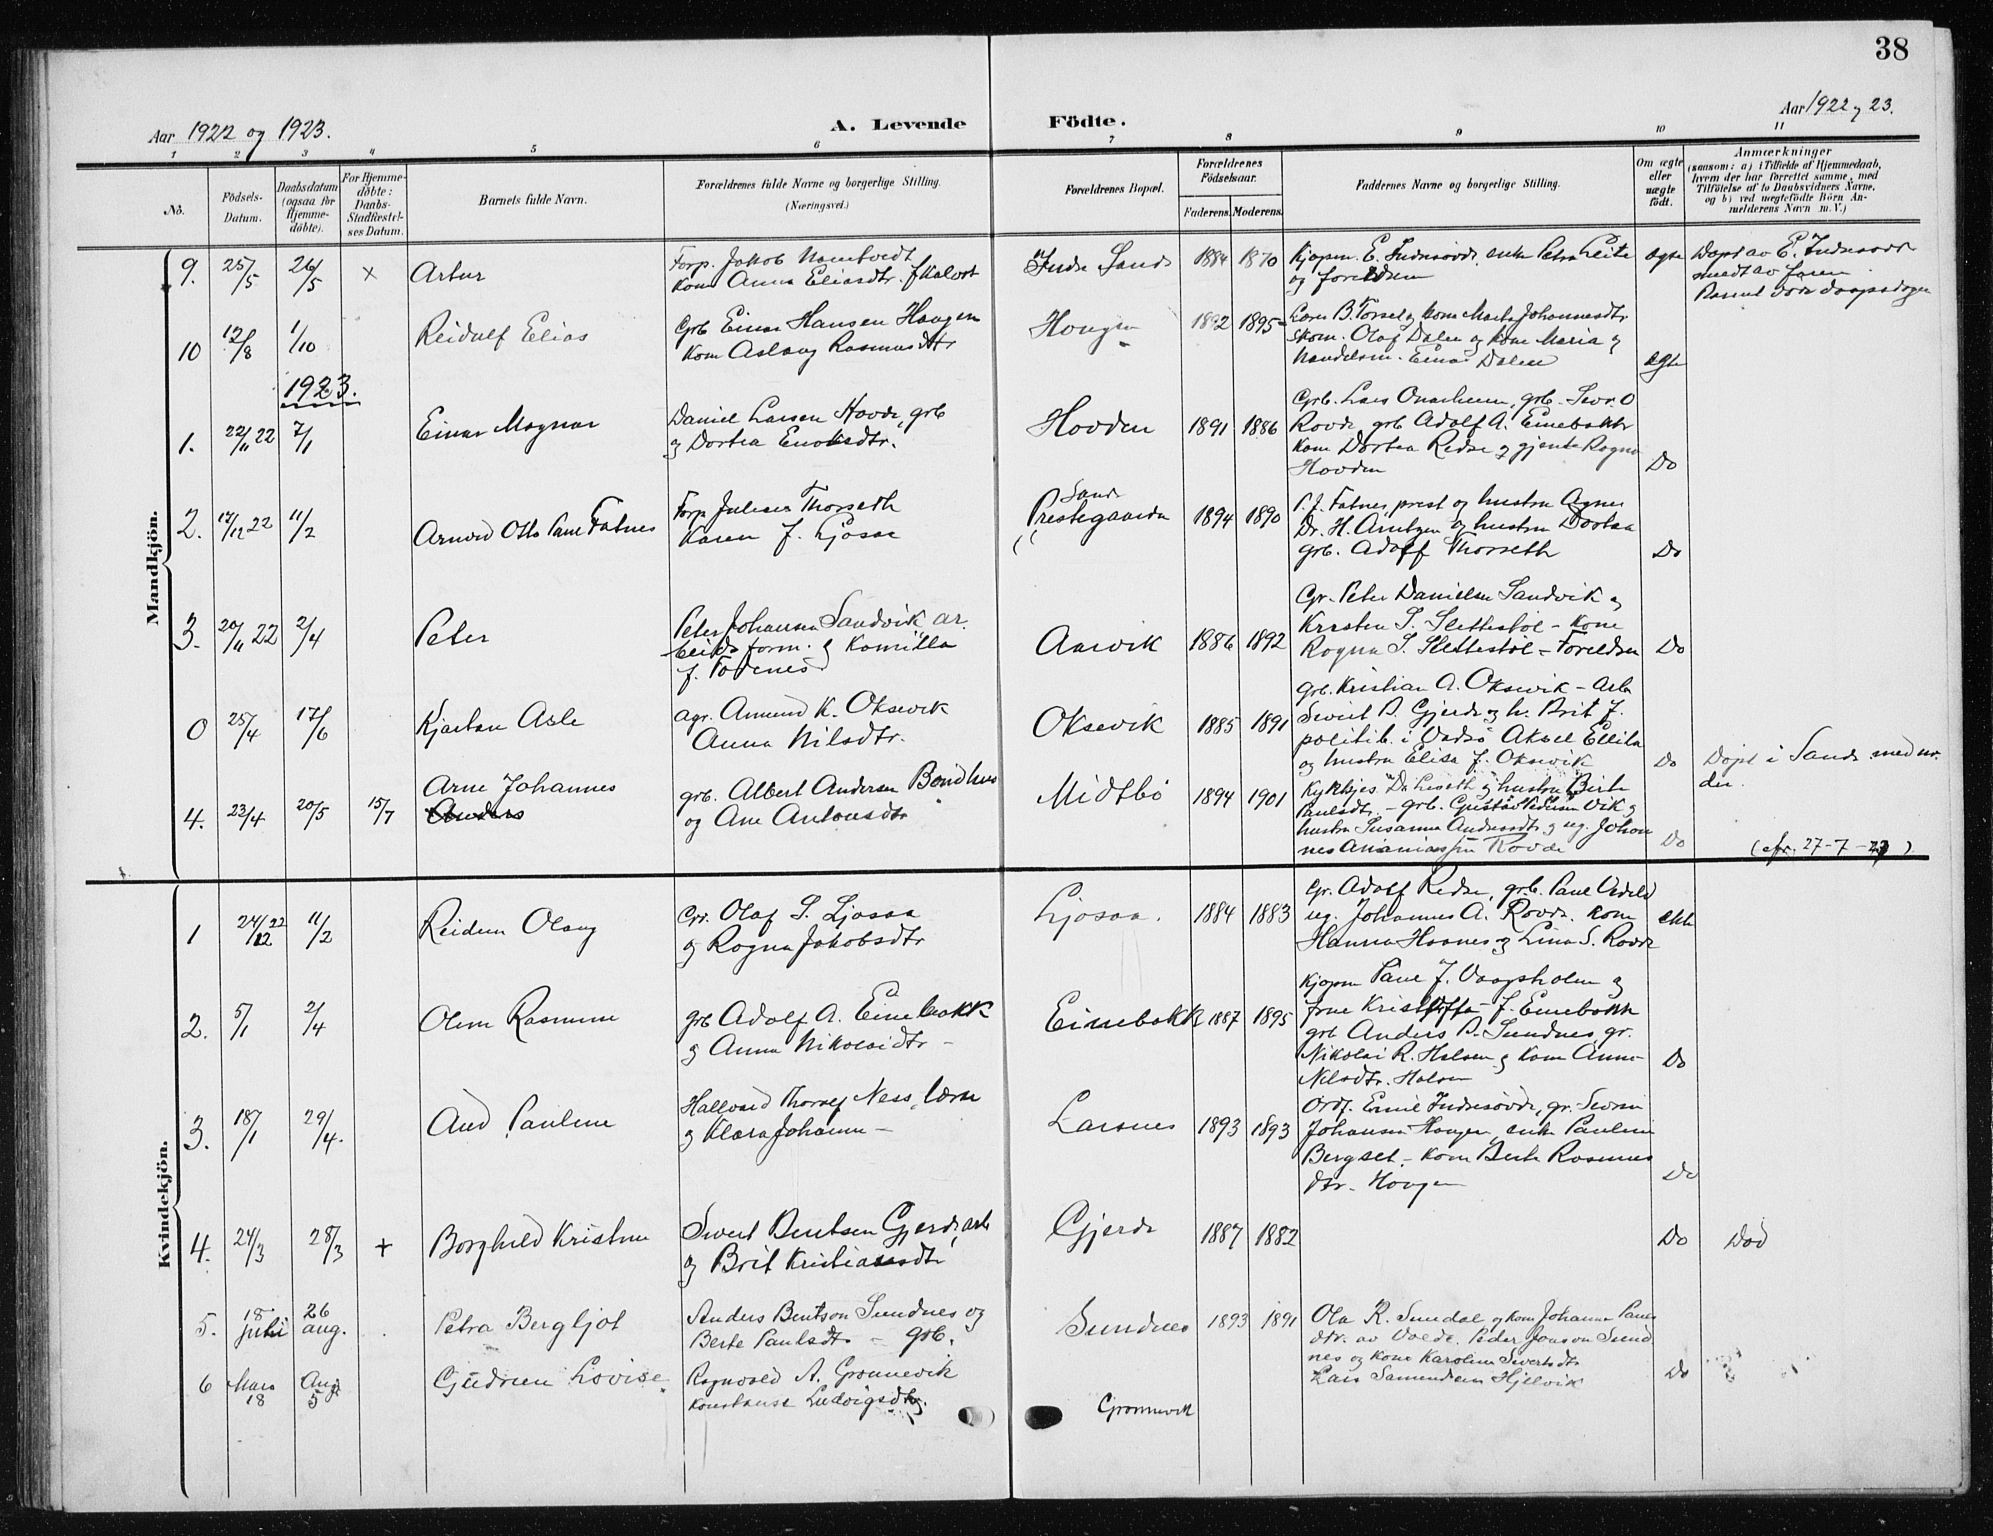 38
Aar 1922 og 1923.
A. Levende Födte.
Aar 1922 og 23.
1 2 3 4 5 6 7 8 9 10 11
No.
Födsels-
Datum.
Daabsdatum
(ogsaa for
Hjemme-
döbte).
For Hjemme-
döbte:
Daabs-
Stadfæstel-
ses Datum.
Barnets fulde Navn.
Forældrenes fulde Navne og borgerlige Stilling.
(Næringsvei.)
Forældrenes Bopæl.
Forældrenes
Födselsaar.
Faderens. Moderens.
Faddernes Navne og borgerlige Stilling.
Om ægte
eller
uægte
födt.
Anmærkninger
(saasom: a) i Tilfælde af Hjemmedaab,
hvem der har forrettet samme, med
Tilföielse af to Daabsvidners Navne,
og b) ved uægtefödte Börn An-
melderens Navn m. V.)
Mandkjön.
9. 25/5 26/5 x Artur
Forp. Jakob
Kone Anna Eliasdtr.
Indre Sande 1884 1870
Kjøpm. E. Indresøvde, enke Petra
og foreldren
ægte
Døpt av E. Indresøvde
10 12/8 1/10 Reidulf Elias
Grb Einar Hansen Haugen
Kone Aslaug Rasmusdtr
Haugen 1892 1895
Lars B. Torset og kone Marta Johannesdtr
Skom. Olaf Dalen og kone Maria og
Handelsm. Einar Dalen
ægte
1923.
1. 22/11 22 7/1 Einar Magnar
Daniel Larsen Hovde, grb
og Dortea Enoksdtr.
Hovden 1891 1886
Grb. Lars Onarheim, grb. Sevr. O
Rovde, grb Adolf A. Einebakk
kone Dortea Redse og gjente Ragna
Hovden
Do
2. 17/12 22 11/2 Arnold Otto Paul Fatnes
Forp Julius Thorseth
Karen f. Ljosaa
Sande
Prestegaarden 1894 1890
P. J. Fatnes, prest og hustru Agnes
Dr. H. Arntzen og hustru Dortea
grb. Adolf Thorseth
Do
3. 20/11 22 2/4 Peter
Peter Johansen Sandvik ar-
beids form. og Kamilla
f. Todenes
Aarvik 1886 1892
Gr. Peter Danielsen Sandvik og
Kristen S. Slettestøl - kone
Ragna S. Slettestøl - Foreldren
Do
0 25/4 17/6 Kjartan Asle
agr. Amund K. Oksevik
Anna Nilsdtr.
Oksevik 1885 1891
Grb. Kristian A. Oksevik - Arb
Sivert B. Gjerde og h. Brit f.
politib. i Vadsø Aksel
og hustru Elisa f. Oksevik
Do
Døpt i Sande med
4. 23/4 20/5 15/7 Arne Johannes
grb. Albert Andersen Bondhus
og Ane Antonsdtr
Midtbø 1894 1901
og hustru Berte
Paulsdtr, - grb. Gustav Pedersen Vik og
hustru Susanna Andreasdtr og ug. Johan
nes Ananiassen Rovde
Do
(cfr. 27-7-23)
Kvindekjön.
1 24/12 22 11/2 Reidun Olaug
Gr. Olaf S. Ljosaa
og Ragna Jakobsdtr
Ljosaa. 1884 1883
Gr. Adolf Redse, grb. Paul
ug. Johannes A. Rovde. Kone
Hanna Haanes og Lina S. Rovde
ekte
2. 5/1 2/4 Olene Rasmine
grb Adolf A. Einebakk
og Anna Nikolaidtr -
Einebakk 1887 1895
Kjøpm Paul J. Vaagsholm og
frue Kristoffa f. Einebakk
grb Anders B. Sundnes gr.
Nikolai R. Halsen og Kone Anne
Nilsdtr. Halsen
Do
3. 18/1 29/4. Aud Pauline
Hallvard Thoralf Ness, lærer
og Klara Johanne -
Larsnes 1893 1893
Ordf. Emil Indresøvde, gr. Severin
Johansen Haugen, enke Pauline
Bergset. - Kone Berte Rasmus
dtr. Haugen
Do
4. 24/3 28/3 + Borghild Kristine
Sivert Bentsen Gjerde, arb
og Brit Kristiansdtr
Gjerde 1887 1882
Do Død
5. 18 juli 26 aug. Petra Bergljot
Anders Bentson Sundnes og
Berte Paulsdtr - grb.
Sundnes 1893 1891
Ola R. Sundal og kone Johanne Pauls
dtr. av Volda. Peder Jonson Sund
nes og kone Karoline Sivertsdtr
Lars Samundsen Hjelvik
Do
6 Mars 18 Aug 5 Gudrun Lovise
Ragnvald A. Grønnevik
Konstanse Ludvigsdtr.
Grønnevik